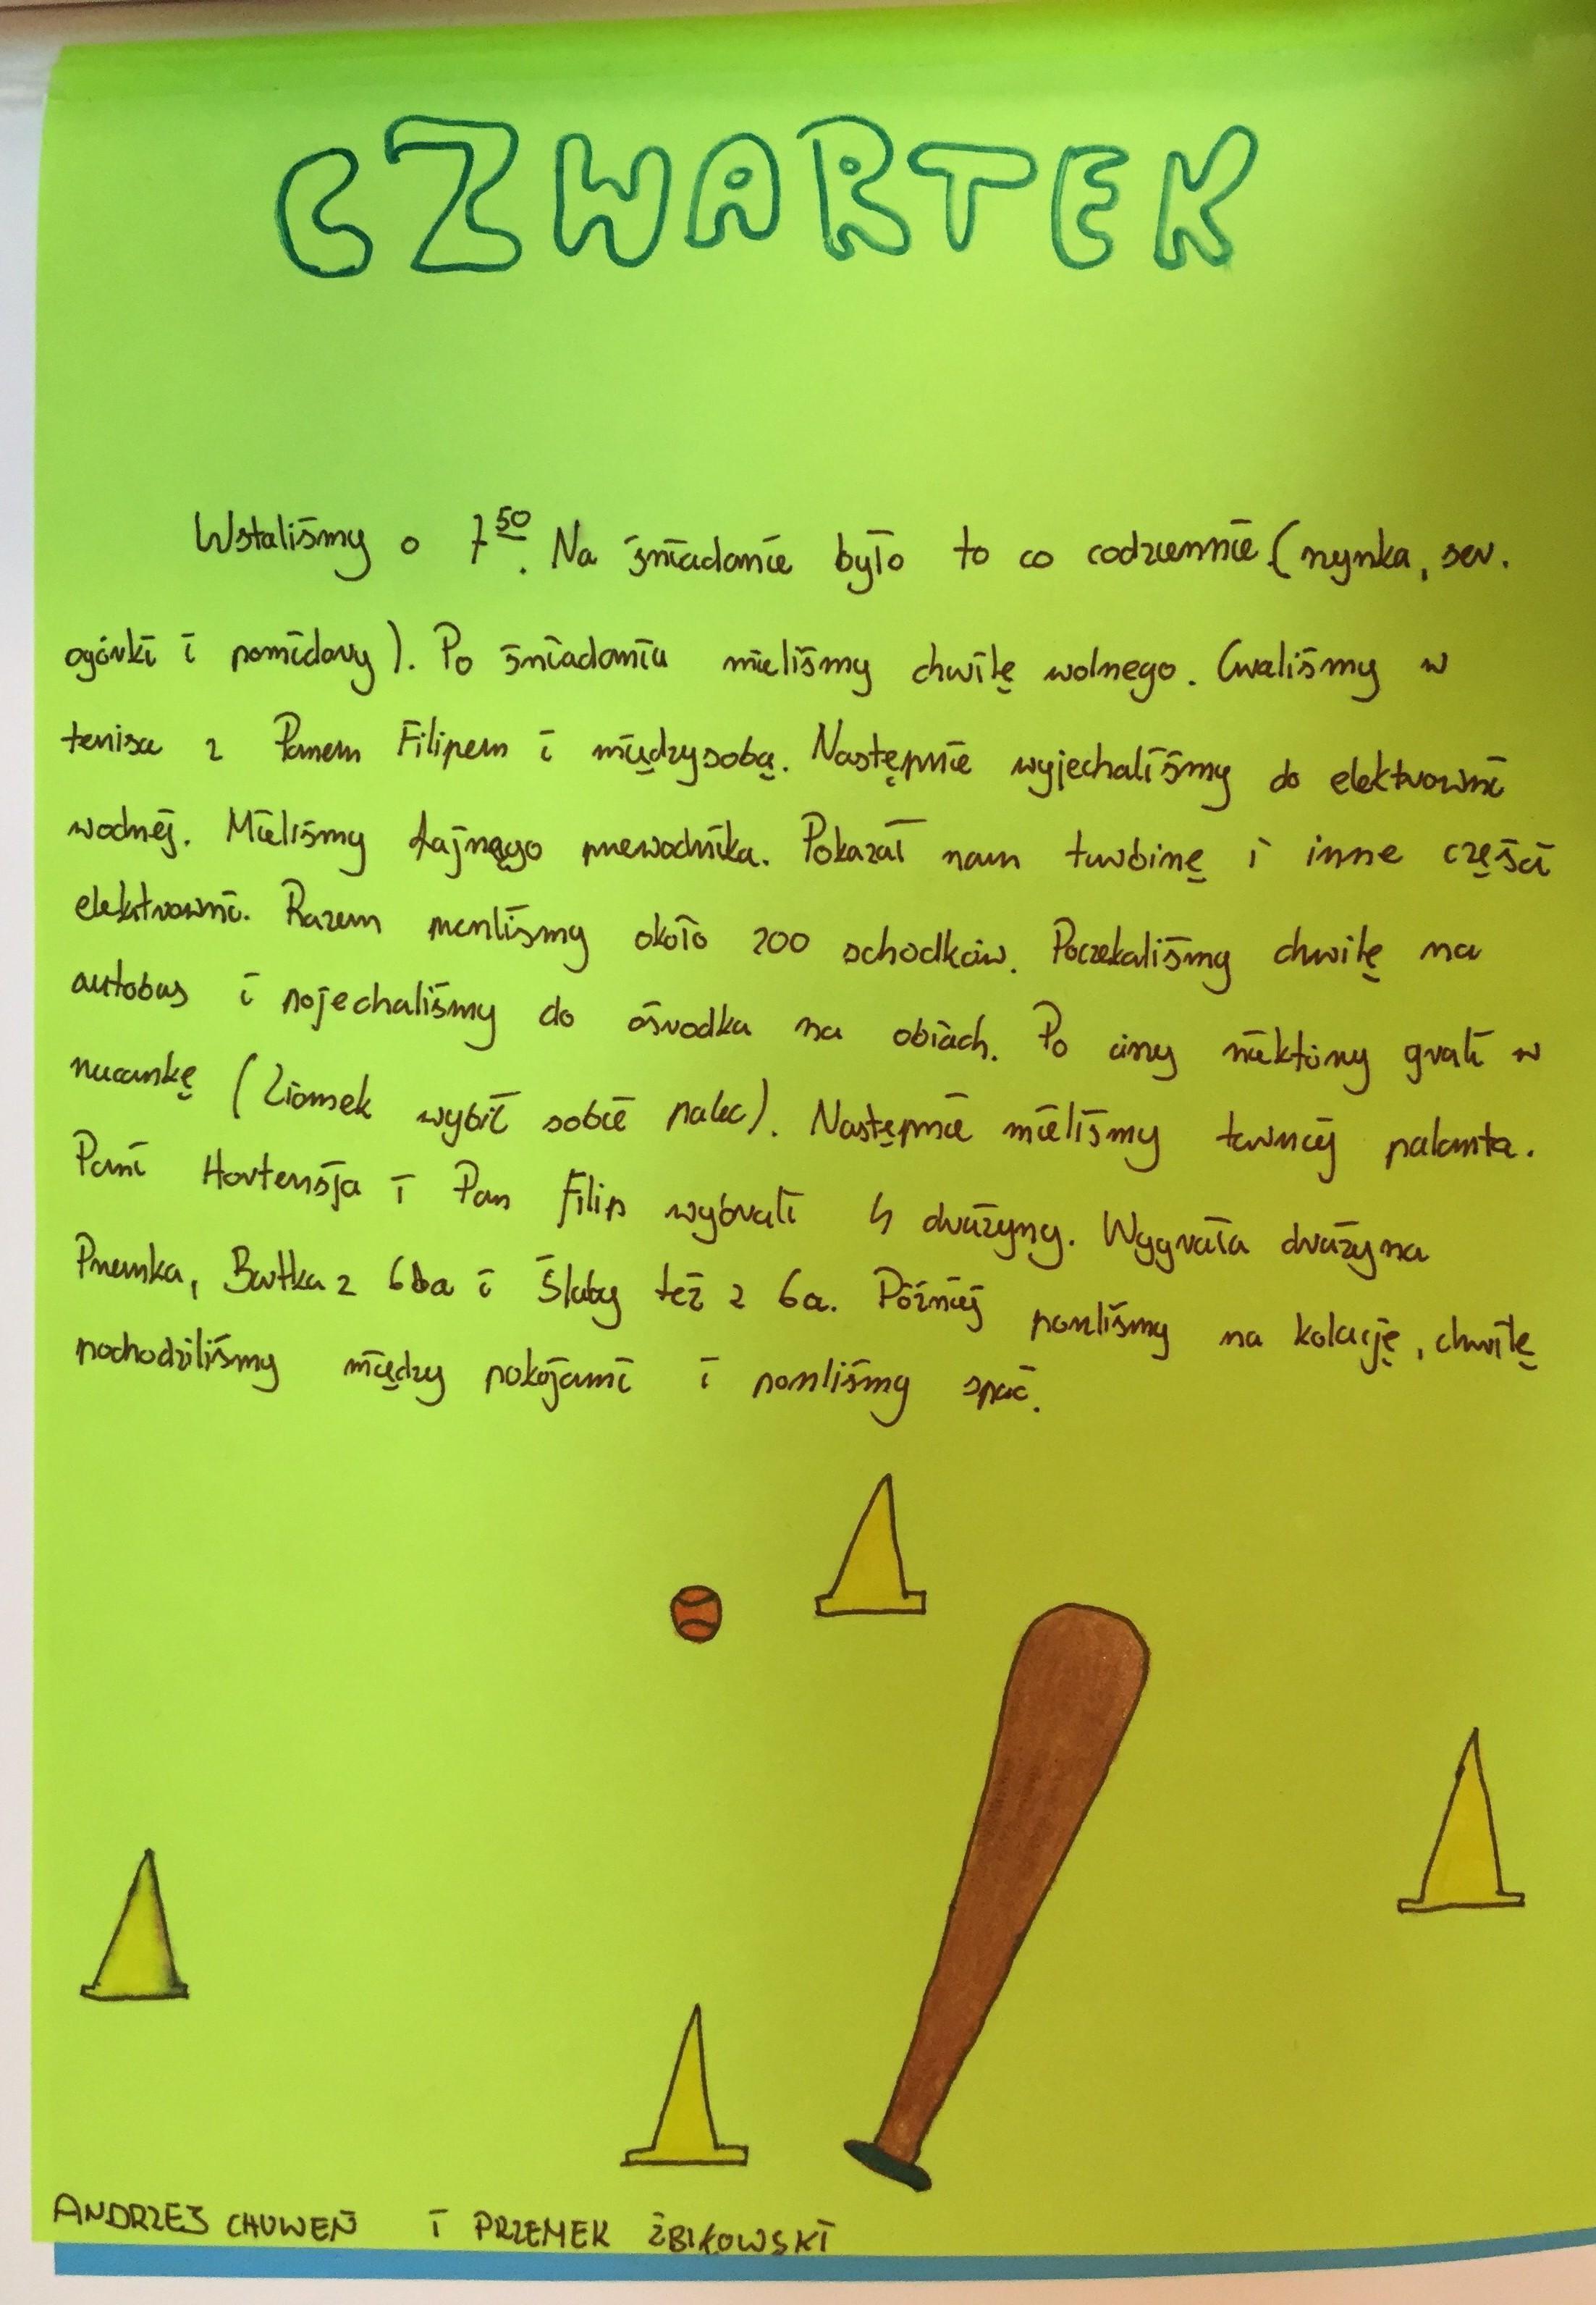 CZWARTEK
Wstaliśmy o 7⁵⁰. Na śniadanie było to co codziennie (szynka, ser,
ogórki i pomidory). Po śniadaniu mieliśmy chwilę wolnego. Graliśmy w
tenisa z Panem Filipem i międzysobą. Następnie wyjechaliśmy do elektrowni
wodnej. Mieliśmy fajnego przewodnika. Pokazał nam turbinę i inne części
elektrowni. Razem przeszliśmy około 200 schodków. Poczekaliśmy chwilę na
autobus i pojechaliśmy do ośrodka na obiad. Po ciszy niektórzy grali w
ruczankę (Ziomek wybił sobie palec). Następnie mieliśmy turniej palanta.
Pani Hortensja i Pan Filip wybrali 4 drużyny. Wygrała drużyna
Przemka, Bartka z 6a i Śluby też z 6a. Później poszliśmy na kolację, chwilę
pochodziliśmy między pokojami i poszliśmy spać.
ANDRZEJ CHUWEŃ I PRZEMEK ŻBIKOWSKI